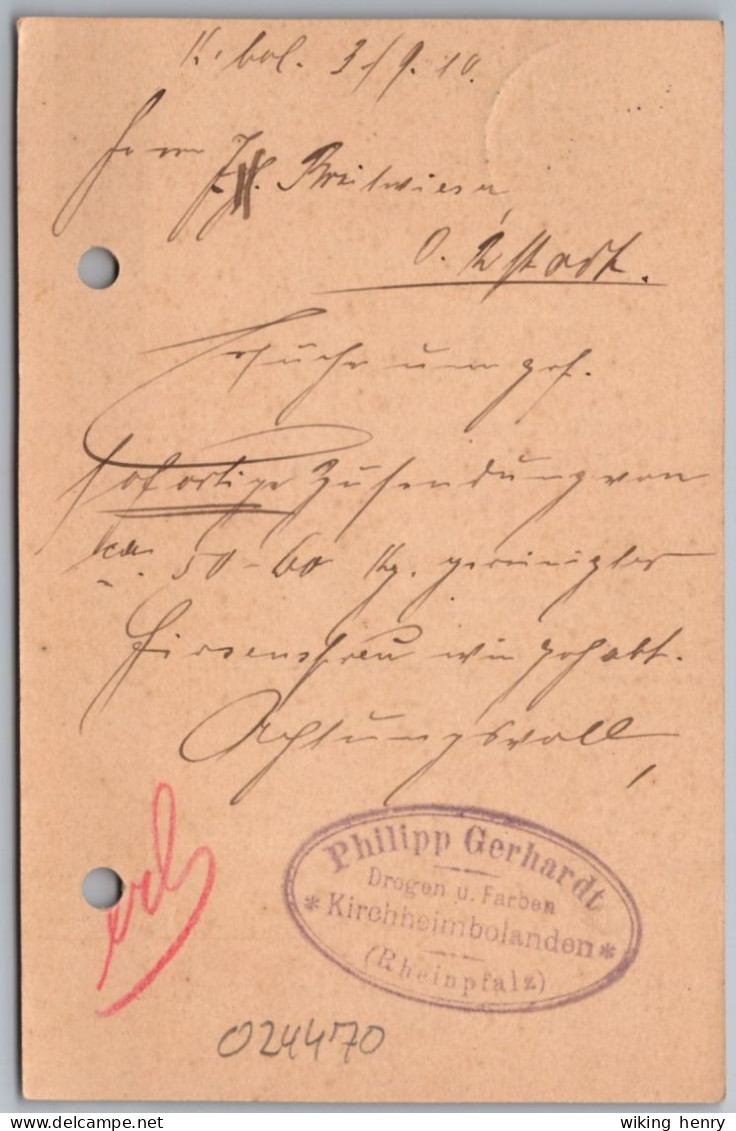 K.bol. 3/9.10.
Herrn Breitwieser,
O. Rstadt.
Ersuche um gef.
sofortige Zusendung von
ca. 50-60 Kg. gereinigter
wie gehabt.
Achtungsvoll,
erl
Philipp Gerhardt
Drogen u. Farben
* Kirchheimbolanden *
(Rheinpfalz)
024470
wiking henry